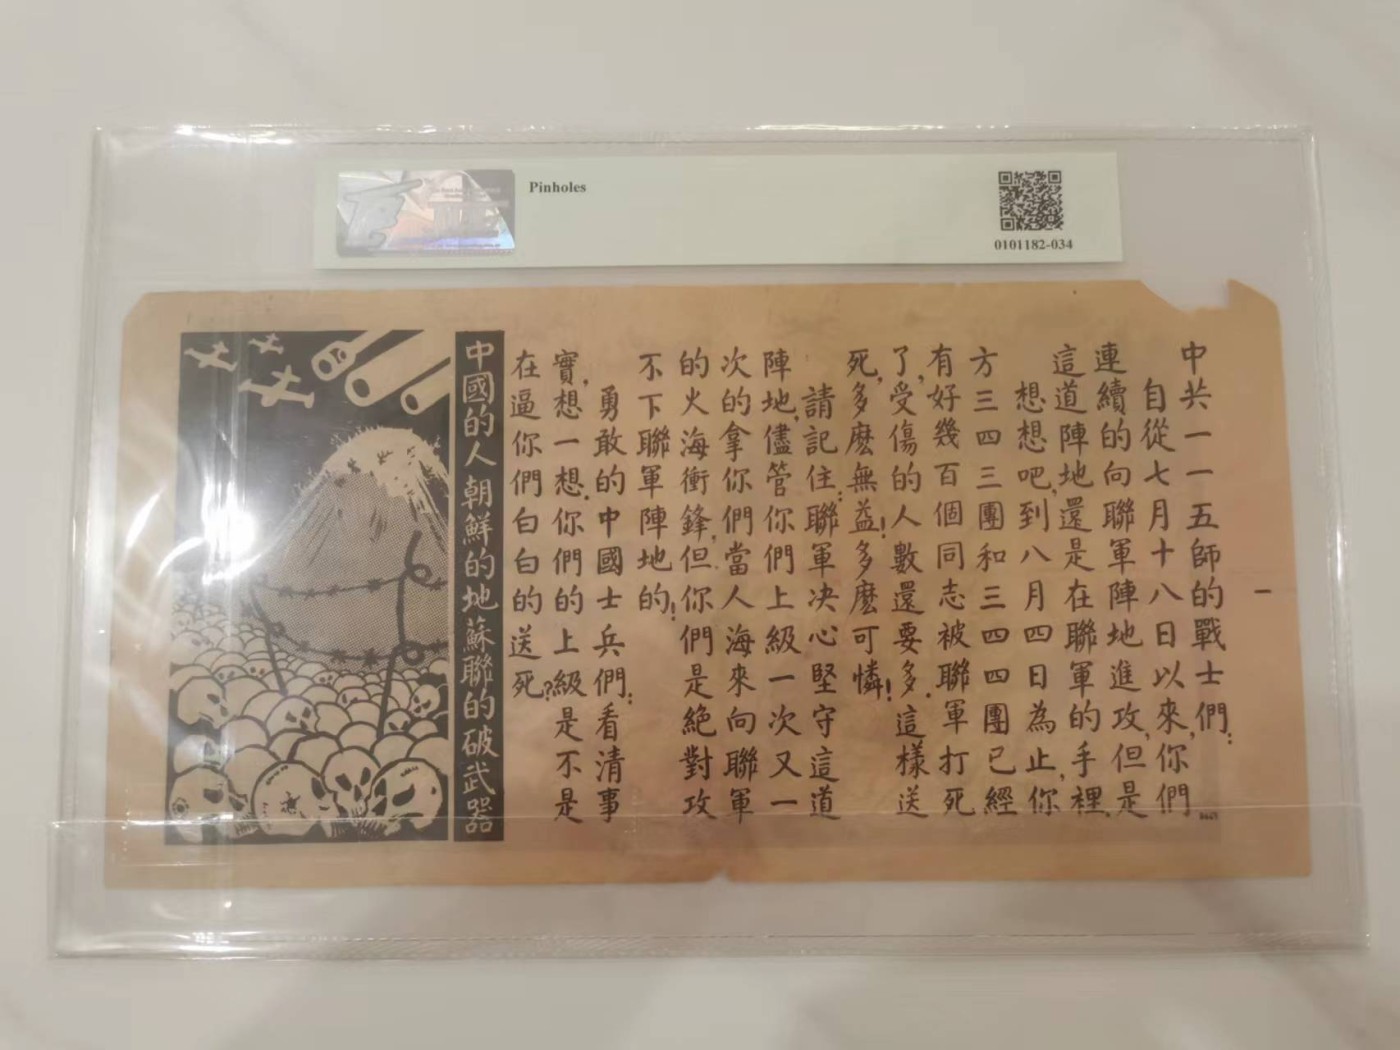 Pinholes
0101182-034
中共一一五師的戰士們:
自從七月十八日以來,你們
連續的向聯軍陣地進攻,但是
這道陣地,還是在聯軍的手裡.
想想吧,到八月四日為止,你
方三四三團和三四四團已經
有好幾百個同志被聯軍打死
了,受傷的人數還要多.這樣送
死,多麼無益!多麼可憐!
請記住:聯軍决心堅守這道
陣地,儘管你們上級一次又一
次的拿你們當人海來向聯軍
的火海衝鋒,但你們是絕對攻
不下聯軍陣地的!
勇敢的中國士兵們:看清事
實,想一想.你們的上級是不是
在逼你們白白的送死?
中國的人 朝鮮的地 蘇聯的破武器